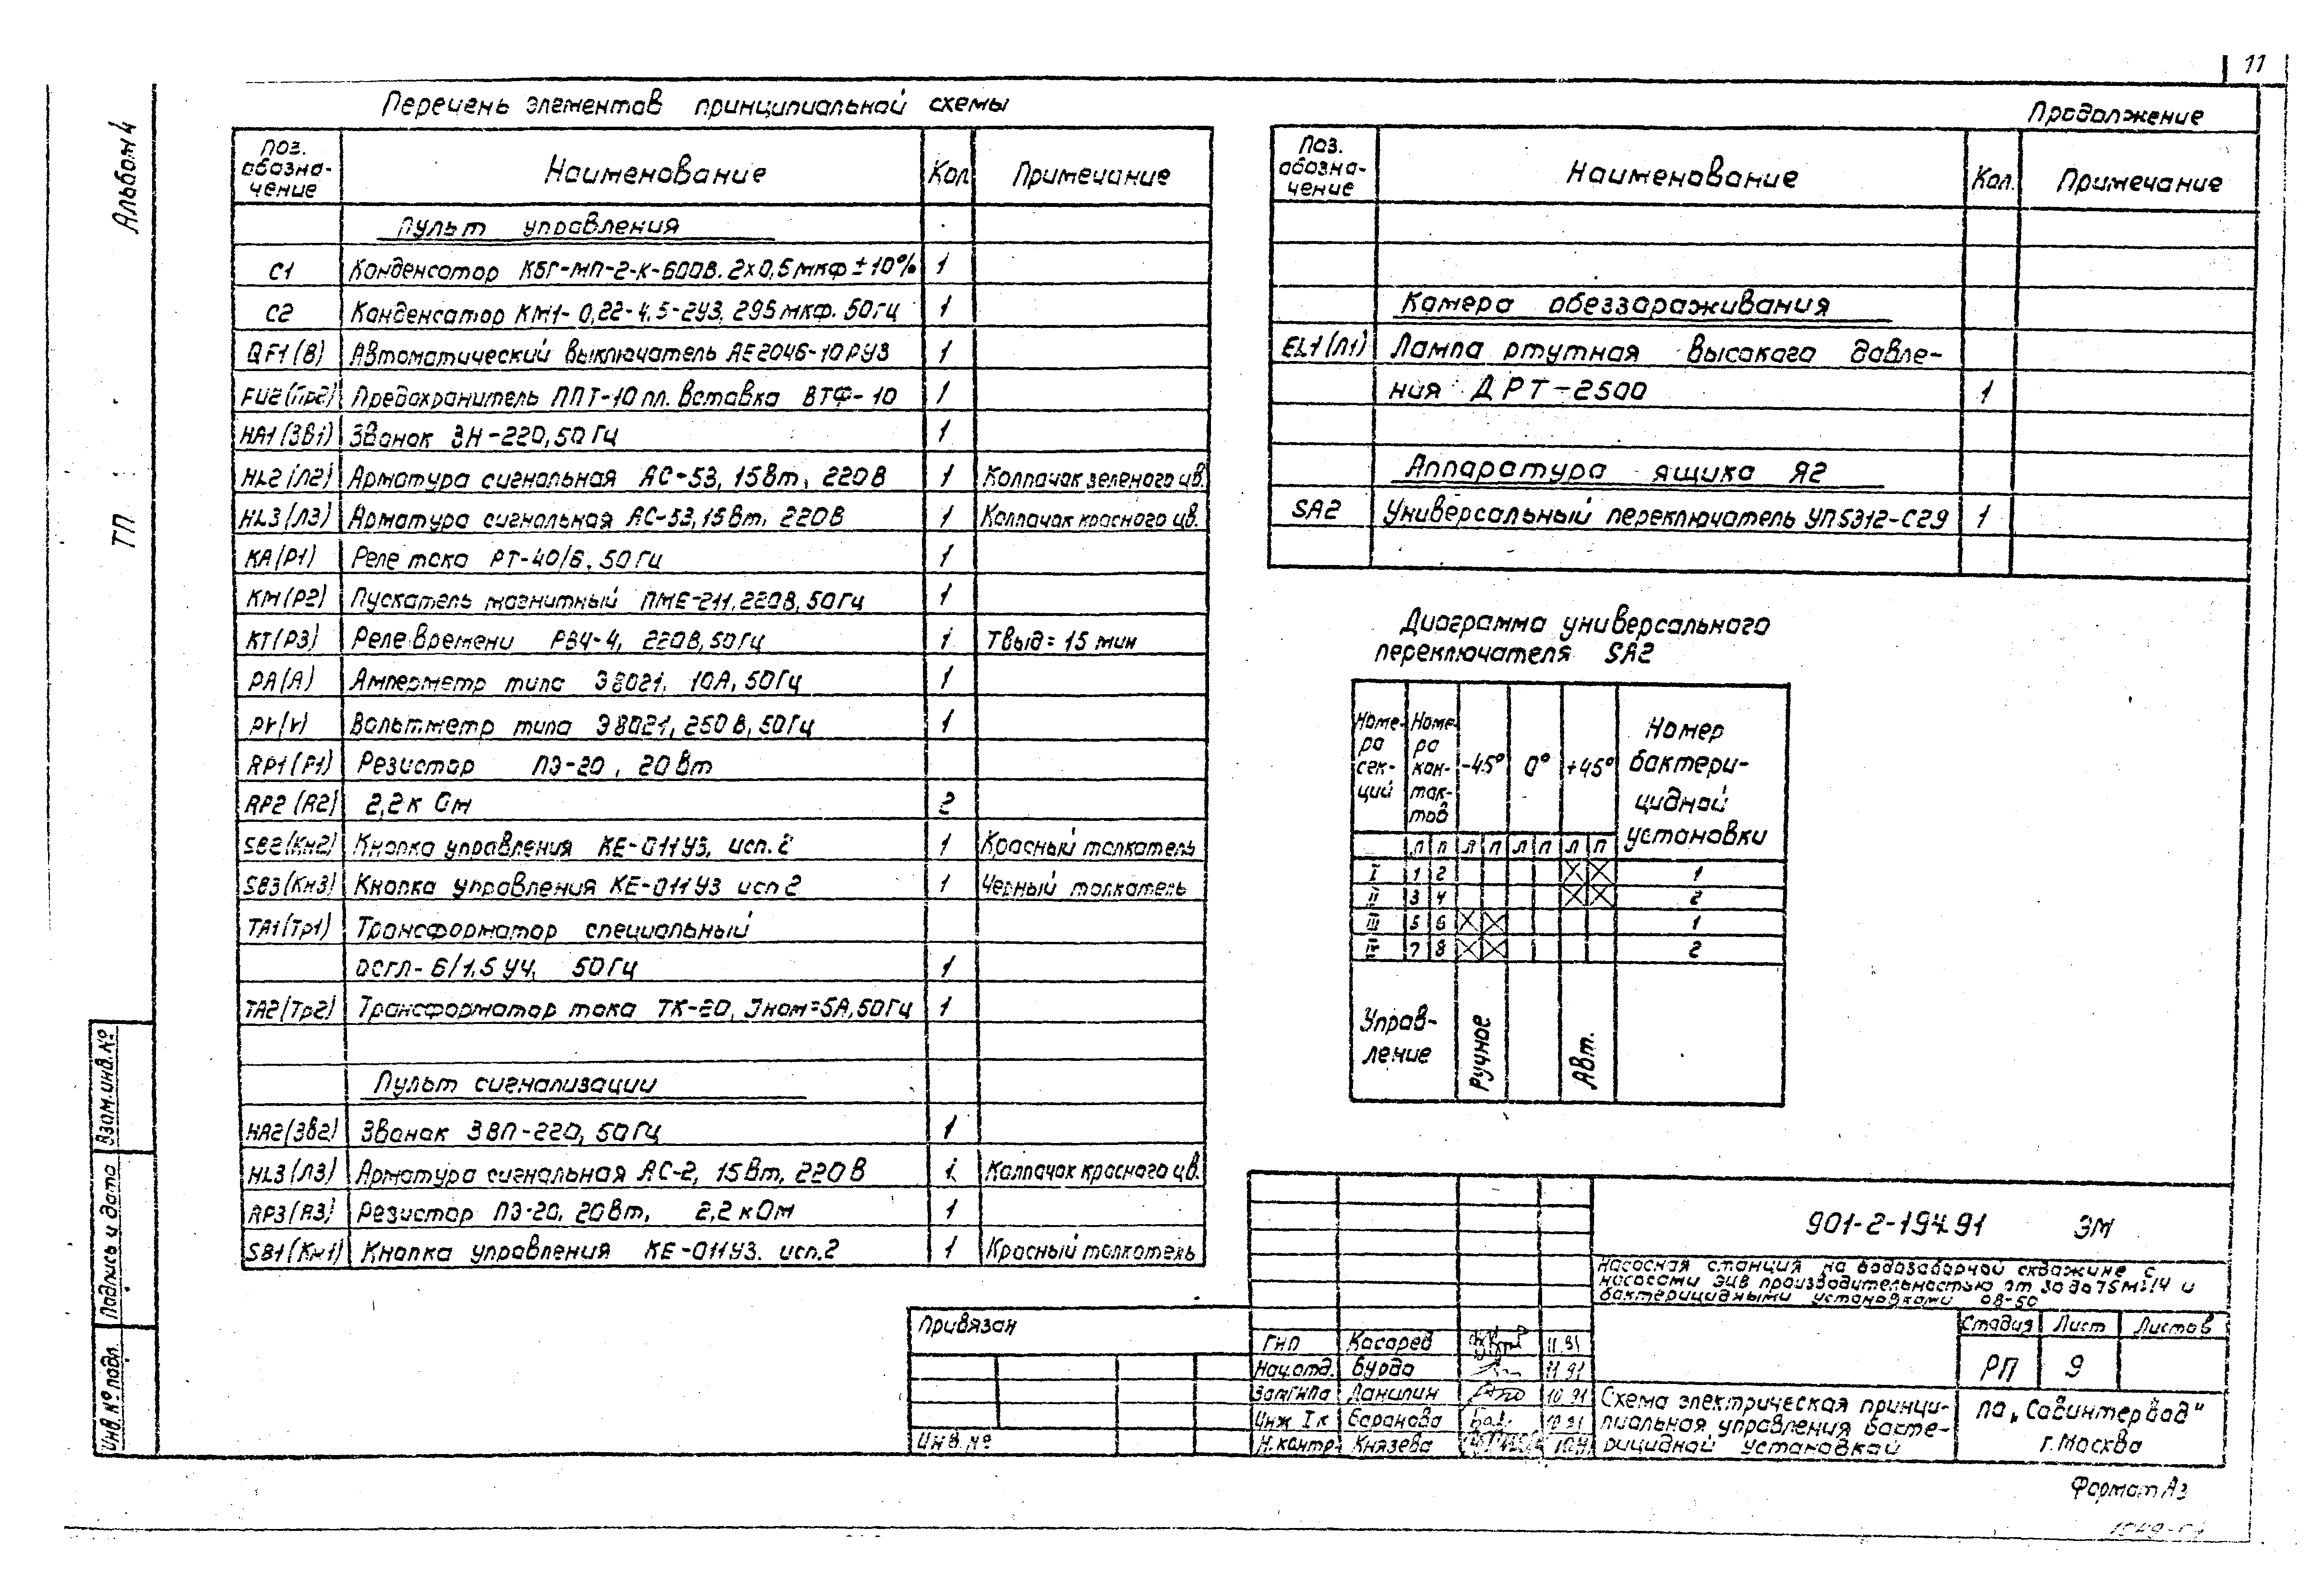 11
Альбом 4
ТП
Перечень элементов принципиальной схемы
Поз. обозначение Наименование Кол Примечание
Пульт управления
C1 Конденсатор КБГ-МП-2-К-600В. 2х0,5 мкф ±10% 1
C2 Конденсатор КМ1-0,22-4,5-2У3, 295 мкф. 50 гц 1
QF1(В) Автоматический выключатель АЕ2046-10РУ3 1
FU2(Пр2) Предохранитель ППТ-10 пл. вставка ВТФ-10 1
HA1(Зв1) Звонок ЗН-220, 50 Гц 1
HL2(Л2) Арматура сигнальная АС-53, 15 Вт, 220 В 1 Колпачок зеленого цв.
HL3(Л3) Арматура сигнальная АС-53, 15 Вт, 220 В 1 Колпачок красного цв.
KA(Р1) Реле тока РТ-40/6, 50 Гц 1
KM(Р2) Пускатель магнитный ПМЕ-211, 220В, 50 Гц 1
KT(Р3) Реле времени РВЧ-4, 220В, 50 Гц 1 Твыд = 15 мин
PA(A) Амперметр типа Э8021, 10А, 50 Гц 1
PV(V) Вольтметр типа Э8021, 250 В, 50 Гц 1
RP1(Р1) Резистор ПЭ-20, 20 Вт
RP2(R2) 2,2 к Ом 2
SB2(Кн2) Кнопка управления КЕ-011У3, исп. 2 1 Красный толкатель
SB3(Кн3) Кнопка управления КЕ-011У3 исп 2 1 Черный толкатель
TA1(Тр1) Трансформатор специальный
ОСГЛ-6/1,5 У4, 50 Гц 1
TA2(Тр2) Трансформатор тока ТК-20, Jном=5А, 50 Гц 1
Пульт сигнализации
HA2(Зв2) Звонок ЗВП-220, 50 Гц 1
HL3(Л3) Арматура сигнальная АС-2, 15 Вт, 220 В 1 Колпачок красного цв.
RP3(R3) Резистор ПЭ-20, 20 Вт, 2,2 кОм 1
SB1(Кн1) Кнопка управления КЕ-011У3. исп. 2 1 Красный толкатель
Продолжение
Поз. обозначение Наименование Кол. Примечание
Камера обеззараживания
EL1(Л1) Лампа ртутная высокого давле-
ния ДРТ-2500 1
Аппаратура ящика Я2
SA2 Универсальный переключатель УП5312-С29 1
Диаграмма универсального
переключателя SA2
Номера секций Номера контактов -45° 0° +45° Номер бактерицидной установки
Л П Л П Л П Л П
I 1 2 X X 1
II 3 4 X X 2
III 5 6 X X 1
IV 7 8 X X 2
Управление Ручное Авт.
Взам. инв. №
Подпись и дата
Инв. № подл.
901-2-194.91 ЭМ
Насосная станция на водозаборной скважине с
насосами ЭЦВ производительностью от 30 до 75 м³/ч и
бактерицидными установками ОВ-50
Привязан
Инв. №
ГИП Косарев 11.91
Нач.отд. Бурда 11.91
Зам ГИПа Данилин 10.91
Инж. I к Баранова 10.91
Н. контр. Князева
Стадия Лист Листов
РП 9
Схема электрическая принци-
пиальная управления бакте-
рицидной установкой
ПО „Совинтервод"
г. Москва
Формат А3